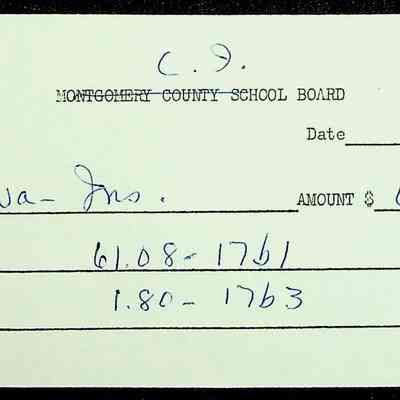 C. I.
MONTGOMERY COUNTY SCHOOL BOARD
Date
Va- Ins. AMOUNT $
61.08- 17b1
1.80- 17b3